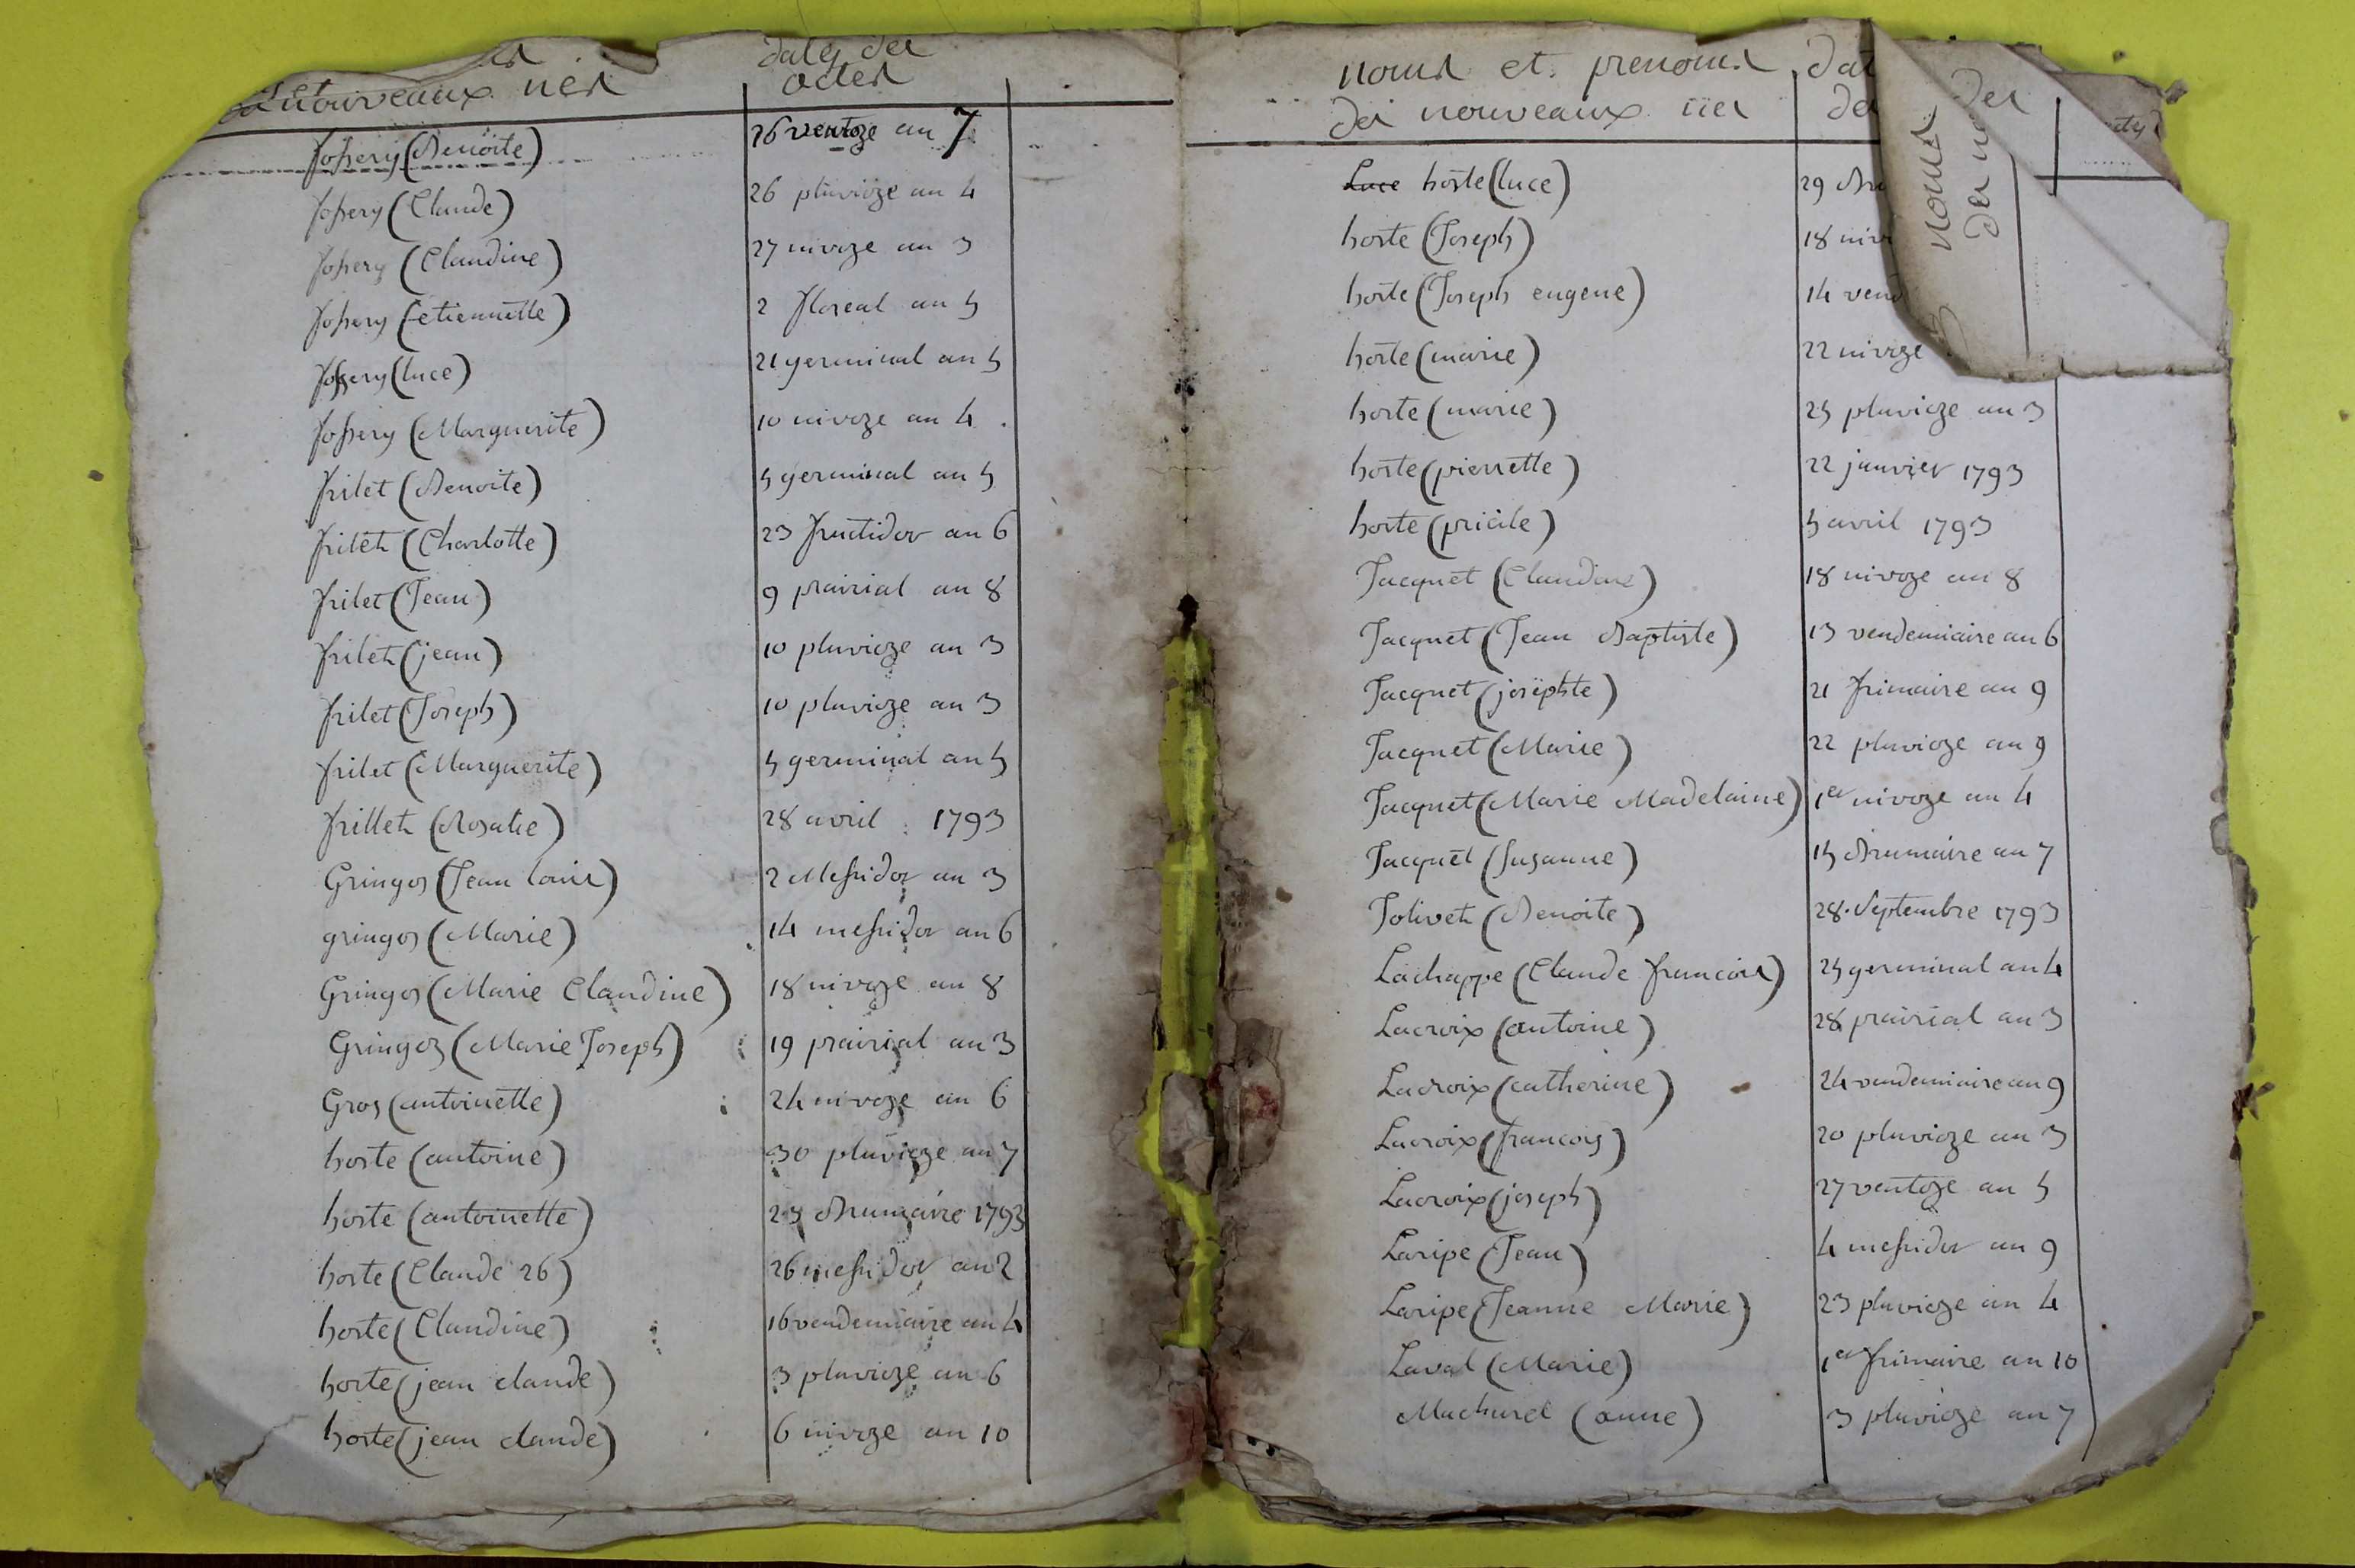 dates des
nouveaux nés actes
fossery (Benoite) 26 ventoze an 7
fossery (Claude) 26 pluvioze an 4
fossery (Claudine) 27 nivoze an 3
fossery (etiennette) 2 floreal an 5
fossery (luce) 21 germinal an 5
fossery (Marguerite) 10 nivoze an 4
frilet (Benoite) 5 germinal an 5
frilet (Charlotte) 23 fructidor an 6
frilet (Jean) 9 prairial an 8
frilet (jean) 10 pluvioze an 3
frilet (Joseph) 10 pluvioze an 3
frilet (Marguerite) 5 germinal an 5
frillet (Rosalie) 28 avril 1793
Gringoz (Jean louis) 2 Messidor an 3
gringoz (Marie) 14 messidor an 6
Gringoz (Marie Claudine) 18 nivoze an 8
Gringoz (Marie Joseph) 19 prairial an 3
Gros (antoinette) 24 nivoze an 6
hoste (antoine) 30 pluvioze an 7
hoste (antoinette) 25 Brumaire 1793
hoste (Claude 26) 26 messidor an 2
hoste (Claudine) 16 vendemiaire an 4
hoste (jean claude) 3 pluvioze an 6
hoste (jean claude) 6 nivoze an 10
noms et prenoms dat
des nouveaux nés des
Luce hoste (luce) 29 Bru
hoste (Joseph) 18 niv
hoste (Joseph eugene) 14 vend
hoste (marie) 22 nivoze
hoste (marie) 25 pluvioze an 3
hoste (pierrette) 22 janvier 1793
hoste (pricile) 5 avril 1793
Jacquet (Claudine) 18 nivoze an 8
Jacquet (Jean Baptiste) 13 vendemiaire an 6
Jacquet (josephte) 21 frimaire an 9
Jacquet (Marie) 22 pluvioze an 9
Jacquet (Marie Madelaine) 1er nivoze an 4
Jacquet (Susanne) 15 Brumaire an 7
Jolivet (Benoite) 28 Septembre 1793
Lachappe (Claude francois) 25 germinal an 4
Lacroix (antoine) 28 prairial an 3
Lacroix (catherine) 24 vendemiaire an 9
Lacroix (francois) 20 pluvioze an 3
Lacroix (joseph) 27 ventoze an 5
Laripe (Jean) 4 messidor an 9
Laripe (Jeanne Marie) 23 pluvioze an 4
Laval (Marie) 1er frimaire an 10
Machurel (anne) 3 pluvioze an 7
noms
des